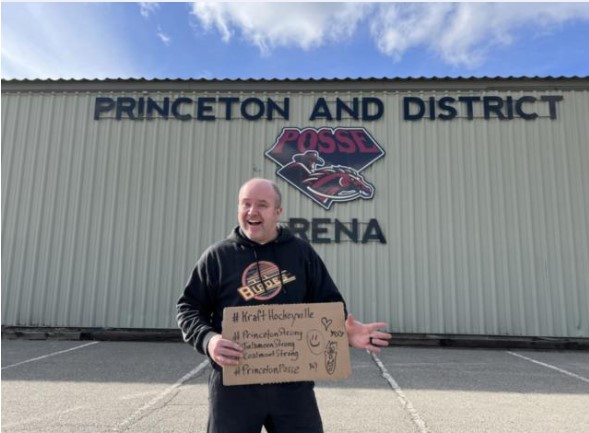 PRINCETON AND DISTRICT
POSSE
RENA
BLADES
#Kraft Hockeyville
#PrincetonStrong
#TulameenStrong
#CoalmontStrong
#PrincetonPosse